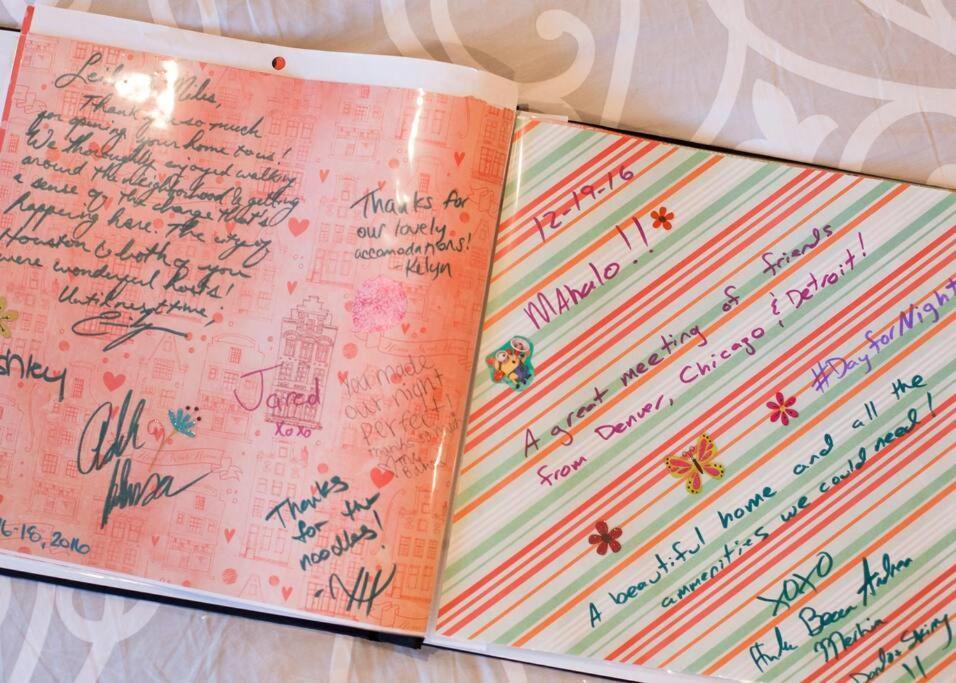 Thank you so much
for opening your home to us!
We thoroughly enjoyed walking
around the neighborhood & getting
a sense of the change that's
happening here. The city of
Houston & both of you
were wonderful hosts!
Until next time,
Thanks for
our lovely
accomodations!
- Kelyn
Jared
xoxo
You made
our night
perfect!
Thanks
for the
noodles!
16-18, 2016
12-19-16
MAhalo!!
A great meeting of friends
from Denver, Chicago & Detroit!
#DayforNight
A beautiful home and all the
ammenities we could need!
XOXO
Becca Andrea